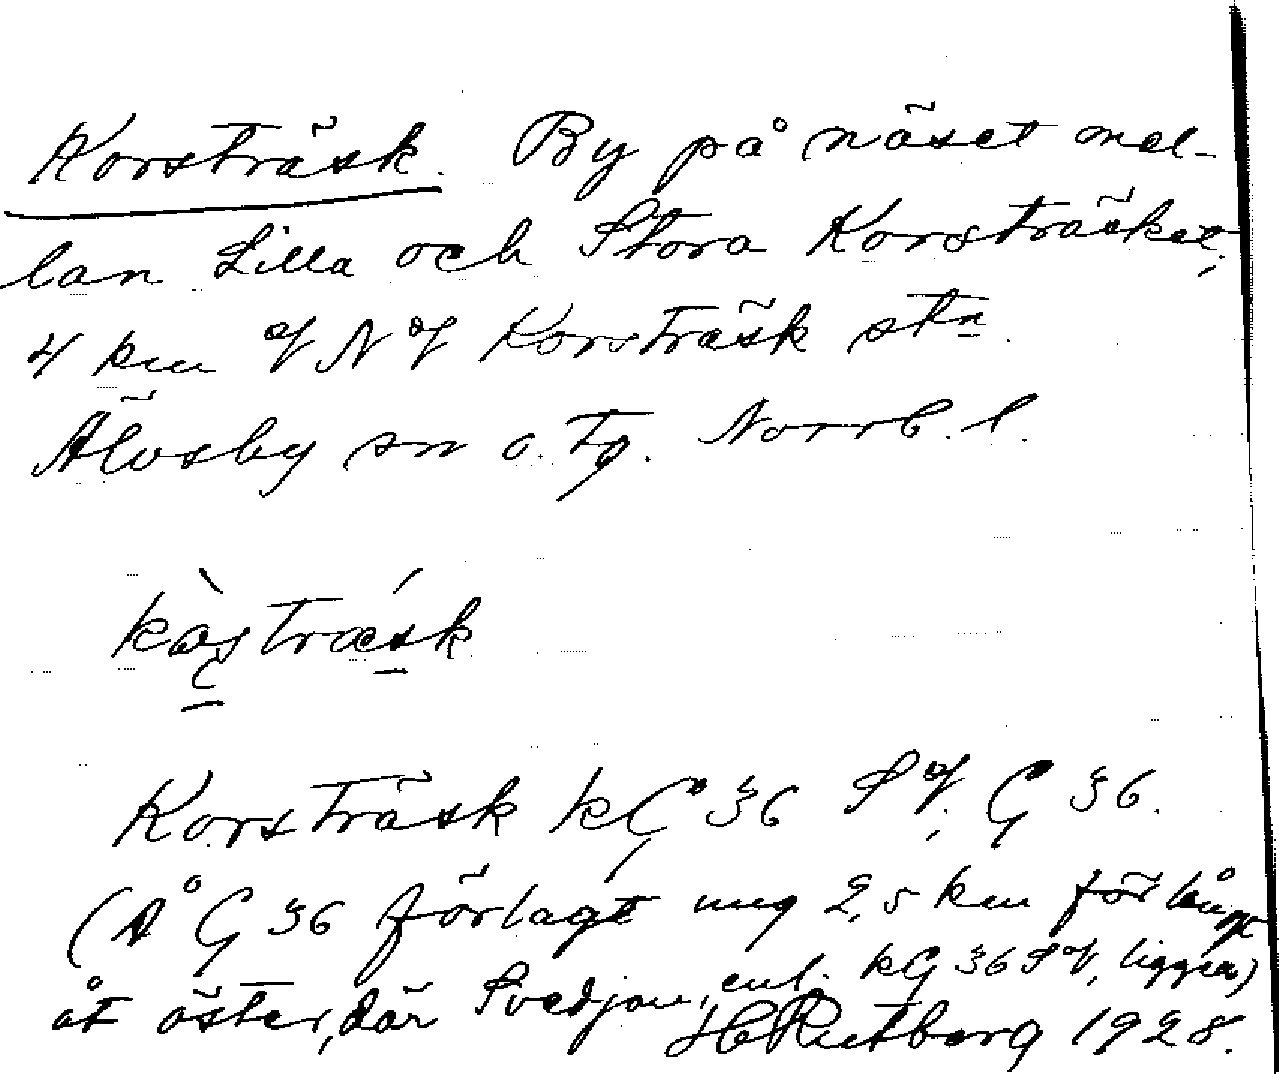 Korsträsk. By på näset mel-
lan Lilla och Stora Korsträsket,
4 km af N af Korsträsk stn
Älvsby sn o. tg. Norrb. l.
kòstræ´sk
Korsträsk kG 36 SV. G 36.
(Å G 36 förlagt ung 2,5 km för långt
åt öster, där Svedjan, enl. kG 36 SV, ligger)
H Rutberg 1928.